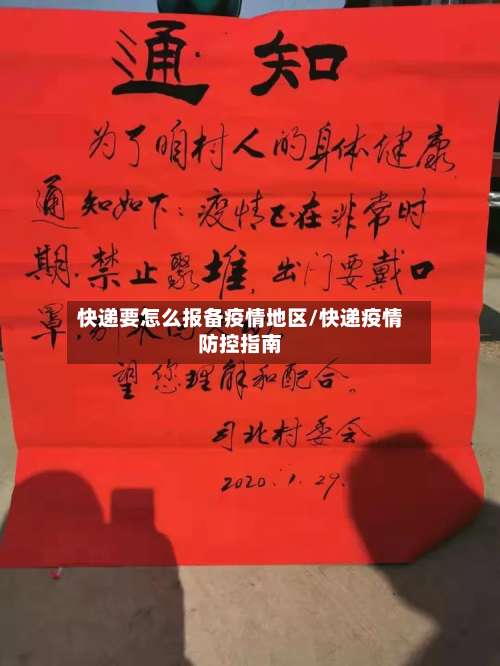 通知
为了咱村人的身体健康,
通知如下:疫情已在非常时
期.禁止聚堆,出门要戴口
罩,
快递要怎么报备疫情地区/快递疫情
防控指南
望您理解和配合。
司北村委会
2020.1.29.